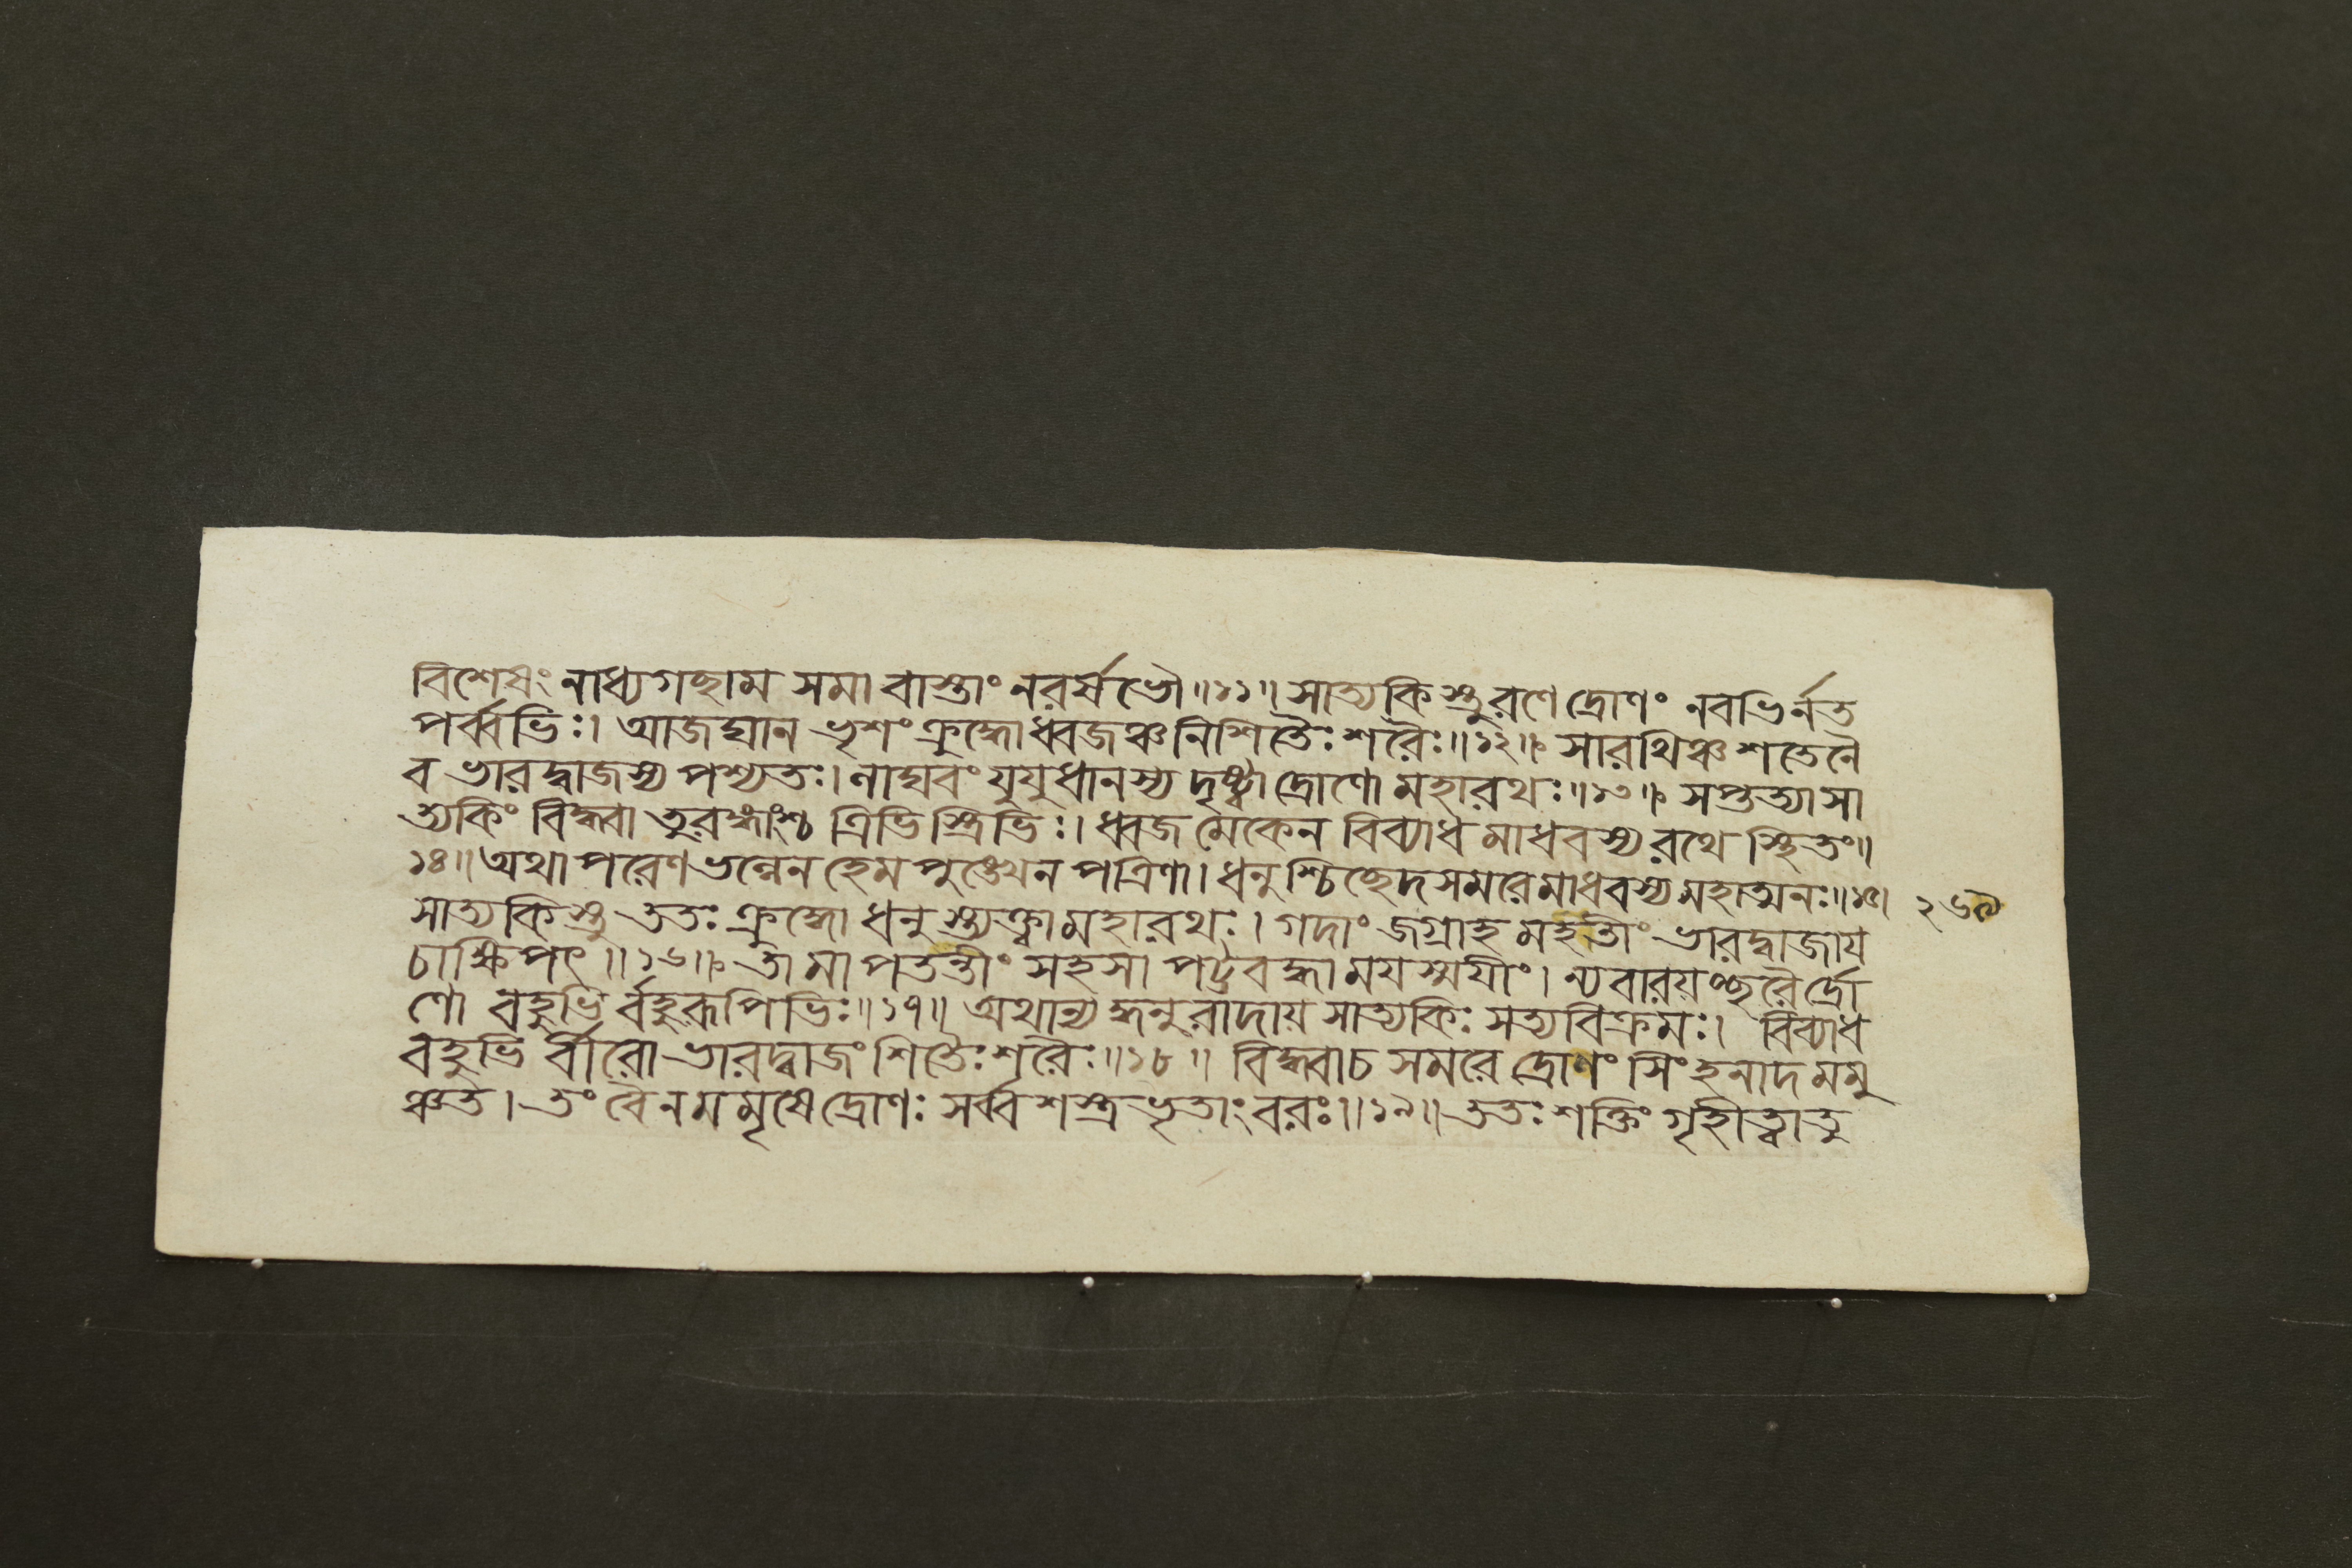 বিশেষং নাধ্যগছাম সমা বাস্তাং নরর্ষভৌ॥১১॥ সাত্যকিস্তুরণে দ্রোণং নবভির্নত
পর্ব্বভিঃ। আজঘান ভৃশং ক্রুদ্ধো ধ্বজঞ্চ নিশিতৈঃ শরৈঃ॥১২॥ সারথিঞ্চ শতেনৈ
ব ভারদ্বাজস্য পশ্যতঃ। লাঘবং যুযুধানস্য দৃষ্ট্বা দ্রোণো মহারথঃ॥১৩॥ সপ্তত্যা সা
ত্যকিং বিদ্ধ্বা তুরঙ্গাংশ্চ ত্রিভিস্ত্রিভিঃ। ধ্বজমেকেন বিব্যাধ মাধবস্য রথে স্থিতং॥
১৪॥ অথাপরেণ ভল্লেন হেমপুঙ্খেন পত্রিণা। ধনুশ্চিচ্ছেদ সমরে মাধবস্য মহাত্মনঃ॥১৫।
সাত্যকিস্তু ততঃ ক্রুদ্ধো ধনুস্ত্যক্ত্বা মহারথঃ। গদাং জগ্রাহ মহতীং ভারদ্বাজায
চাক্ষিপৎ॥১৬॥ তামাপতন্তীং সহসা পট্টবদ্ধাময়স্ময়ীং। ন্যবারয়চ্ছরৈর্দ্রো
ণো বহুভির্বহুরূপিভিঃ॥১৭॥ অথান্যদ্ধনুরাদায় সাত্যকিঃ সত্যবিক্রমঃ। বিব্যাধ
বহুভির্বীরো ভারদ্বাজং শিতৈঃ শরৈঃ॥১৮॥ বিদ্ধ্বা চ সমরে দ্রোণং সিংহনাদমমু
ঞ্চত। তং বৈ ন মমৃষে দ্রোণঃ সর্ব্বশস্ত্রভৃতাং বরঃ॥১৯॥ ততঃ শক্তিং গৃহীত্বা তু